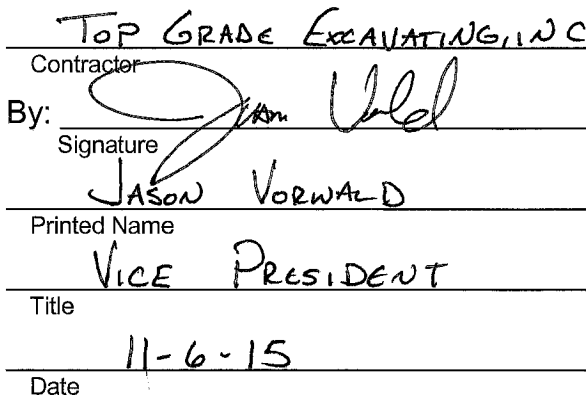 TOP GRADE EXCAVATING, INC
Contractor
By: Jason Vorwald
Signature
JASON VORWALD
Printed Name
VICE PRESIDENT
Title
11-6-15
Date